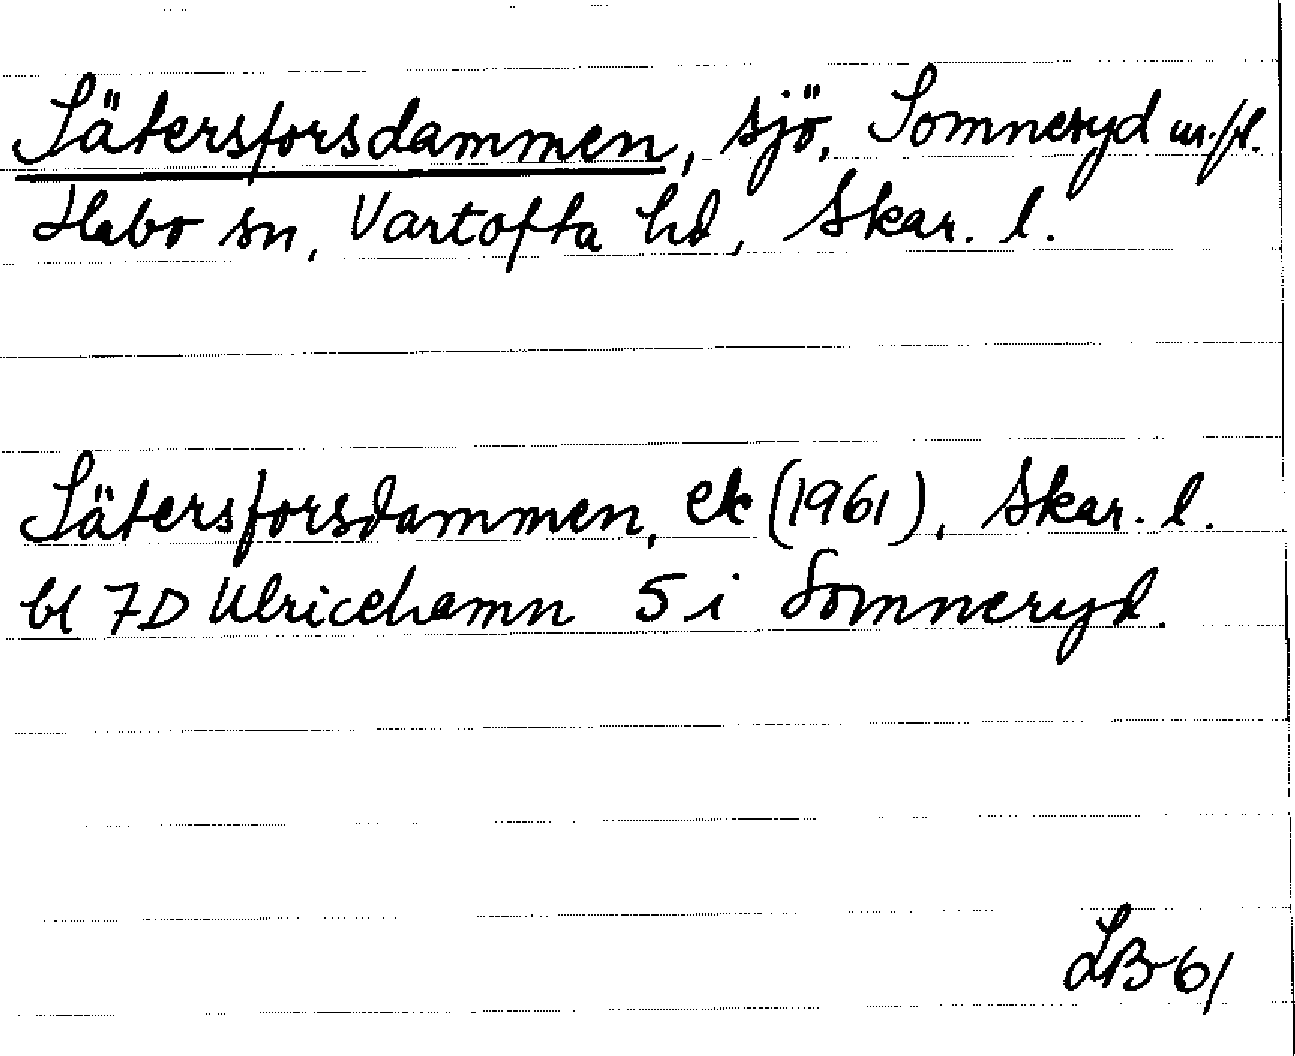 Sätersforsdammen, sjö, Somneryd m.fl.
Habo sn, Vartofta hd, Skar. l.
Sätersforsdammen, ek (1961), Skar. l.
bl 7D Ulricehamn 5 i Somneryd.
LB 61